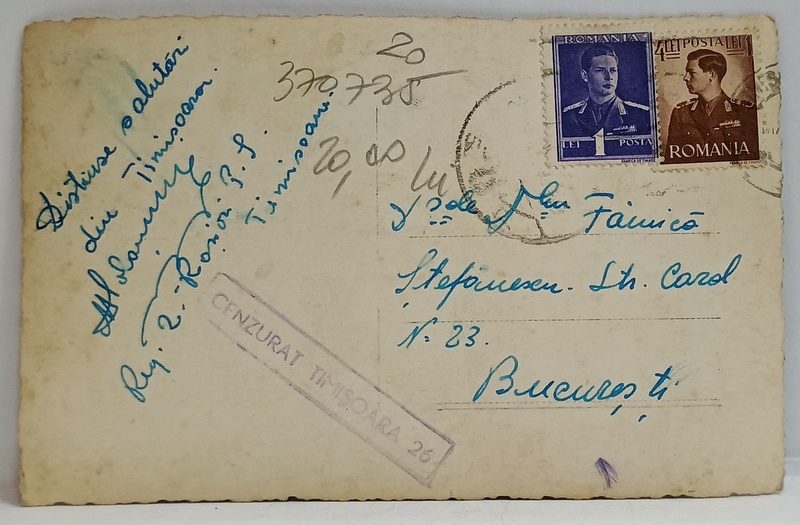 Distinse salutări
din Timisoara.
Reg. 2.
Timisoara.
20
370735
20,00 lei
ROMANIA
LEI 1 POSTA
4 LEI POSTA LEI
ROMANIA
Fănică
Ștefănescu. Str. Carol
N: 23.
București
CENZURAT TIMIȘOARA 26